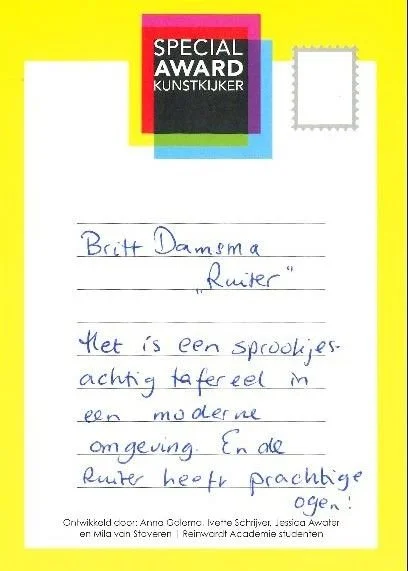 SPECIAL
AWARD
KUNSTKIJKER
Britt Damsma
„Ruiter"
Het is een sprookjes-
achtig tafereel in
een moderne
omgeving. En de
Ruiter heeft prachtige
ogen!
Ontwikkeld door: Anna Golema, Ivette Schrijver, Jessica Awater
en Mila van Staveren | Reinwardt Academie studenten